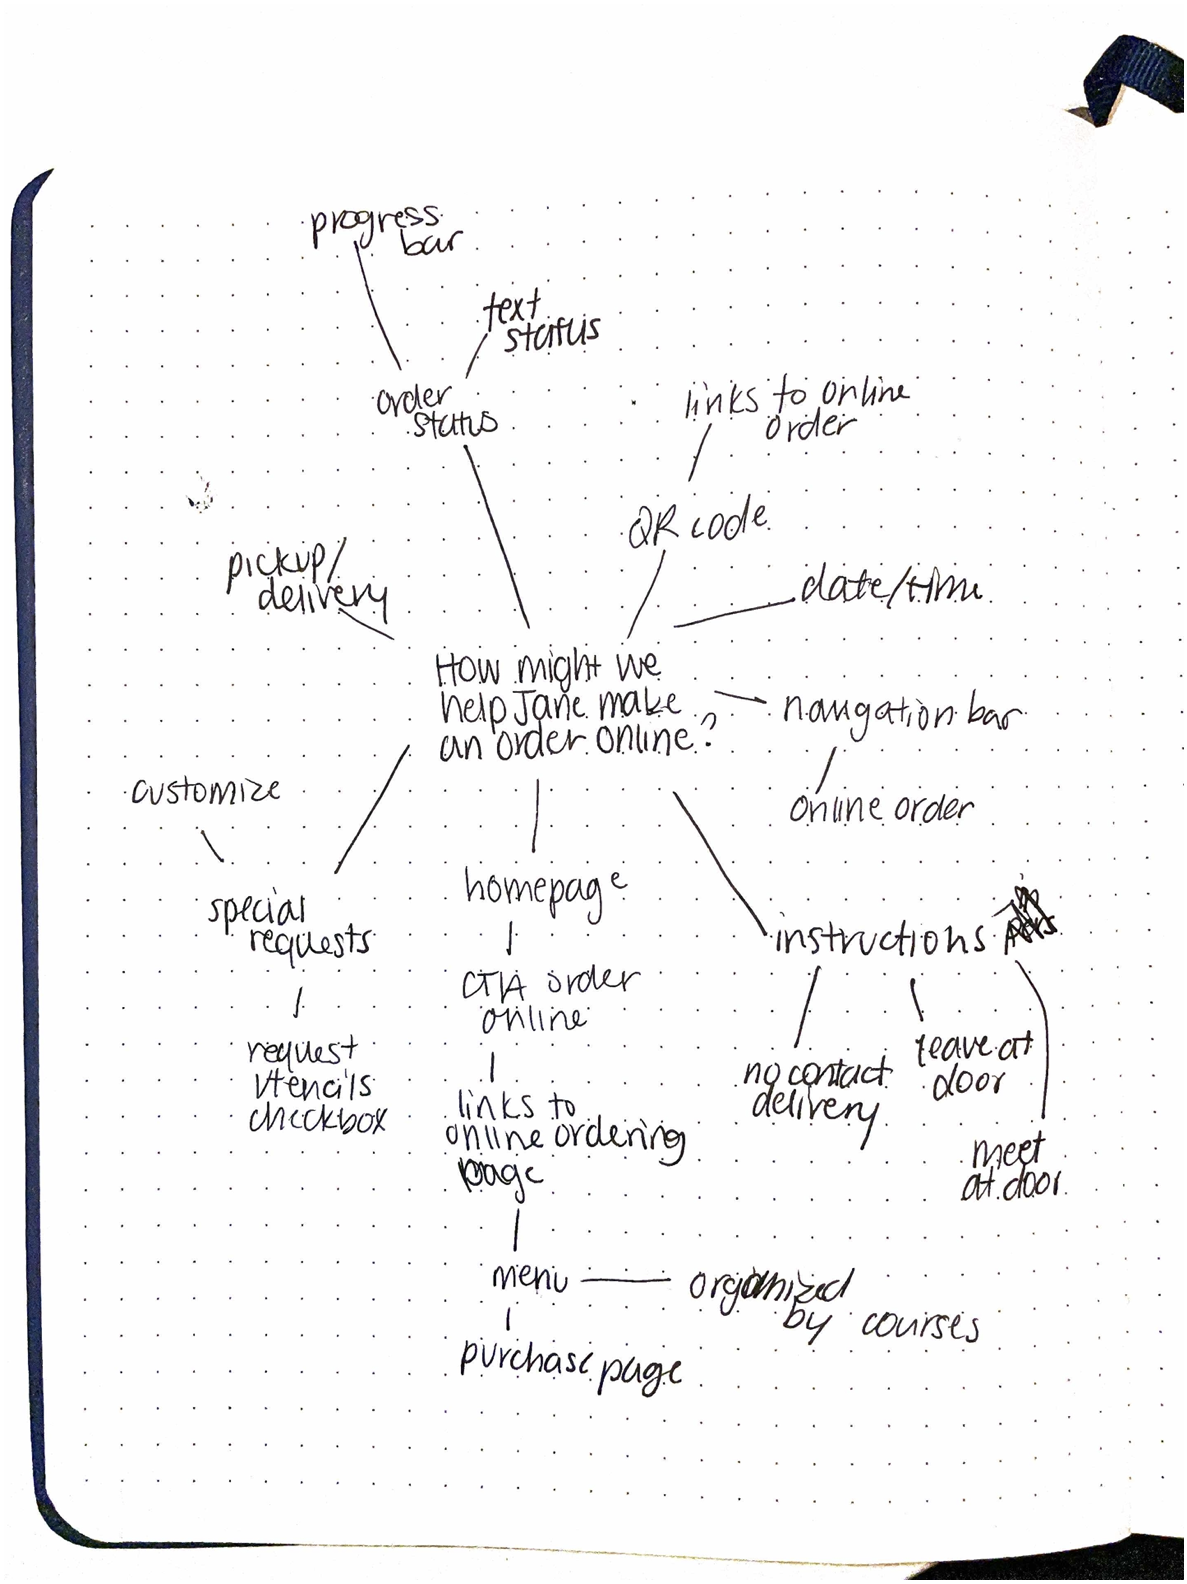 progress
bar
text
status
order
status
links to online
order
QR code
pickup/
delivery
date/time
How might we
help Jane make
an order online?
navigation bar
online order
customize
special
requests
homepage
instructions
CTA order
online
request
utencils
checkbox
no contact
delivery
leave at
door
links to
online ordering
page
meet
at door
menu
organized
by courses
purchase page